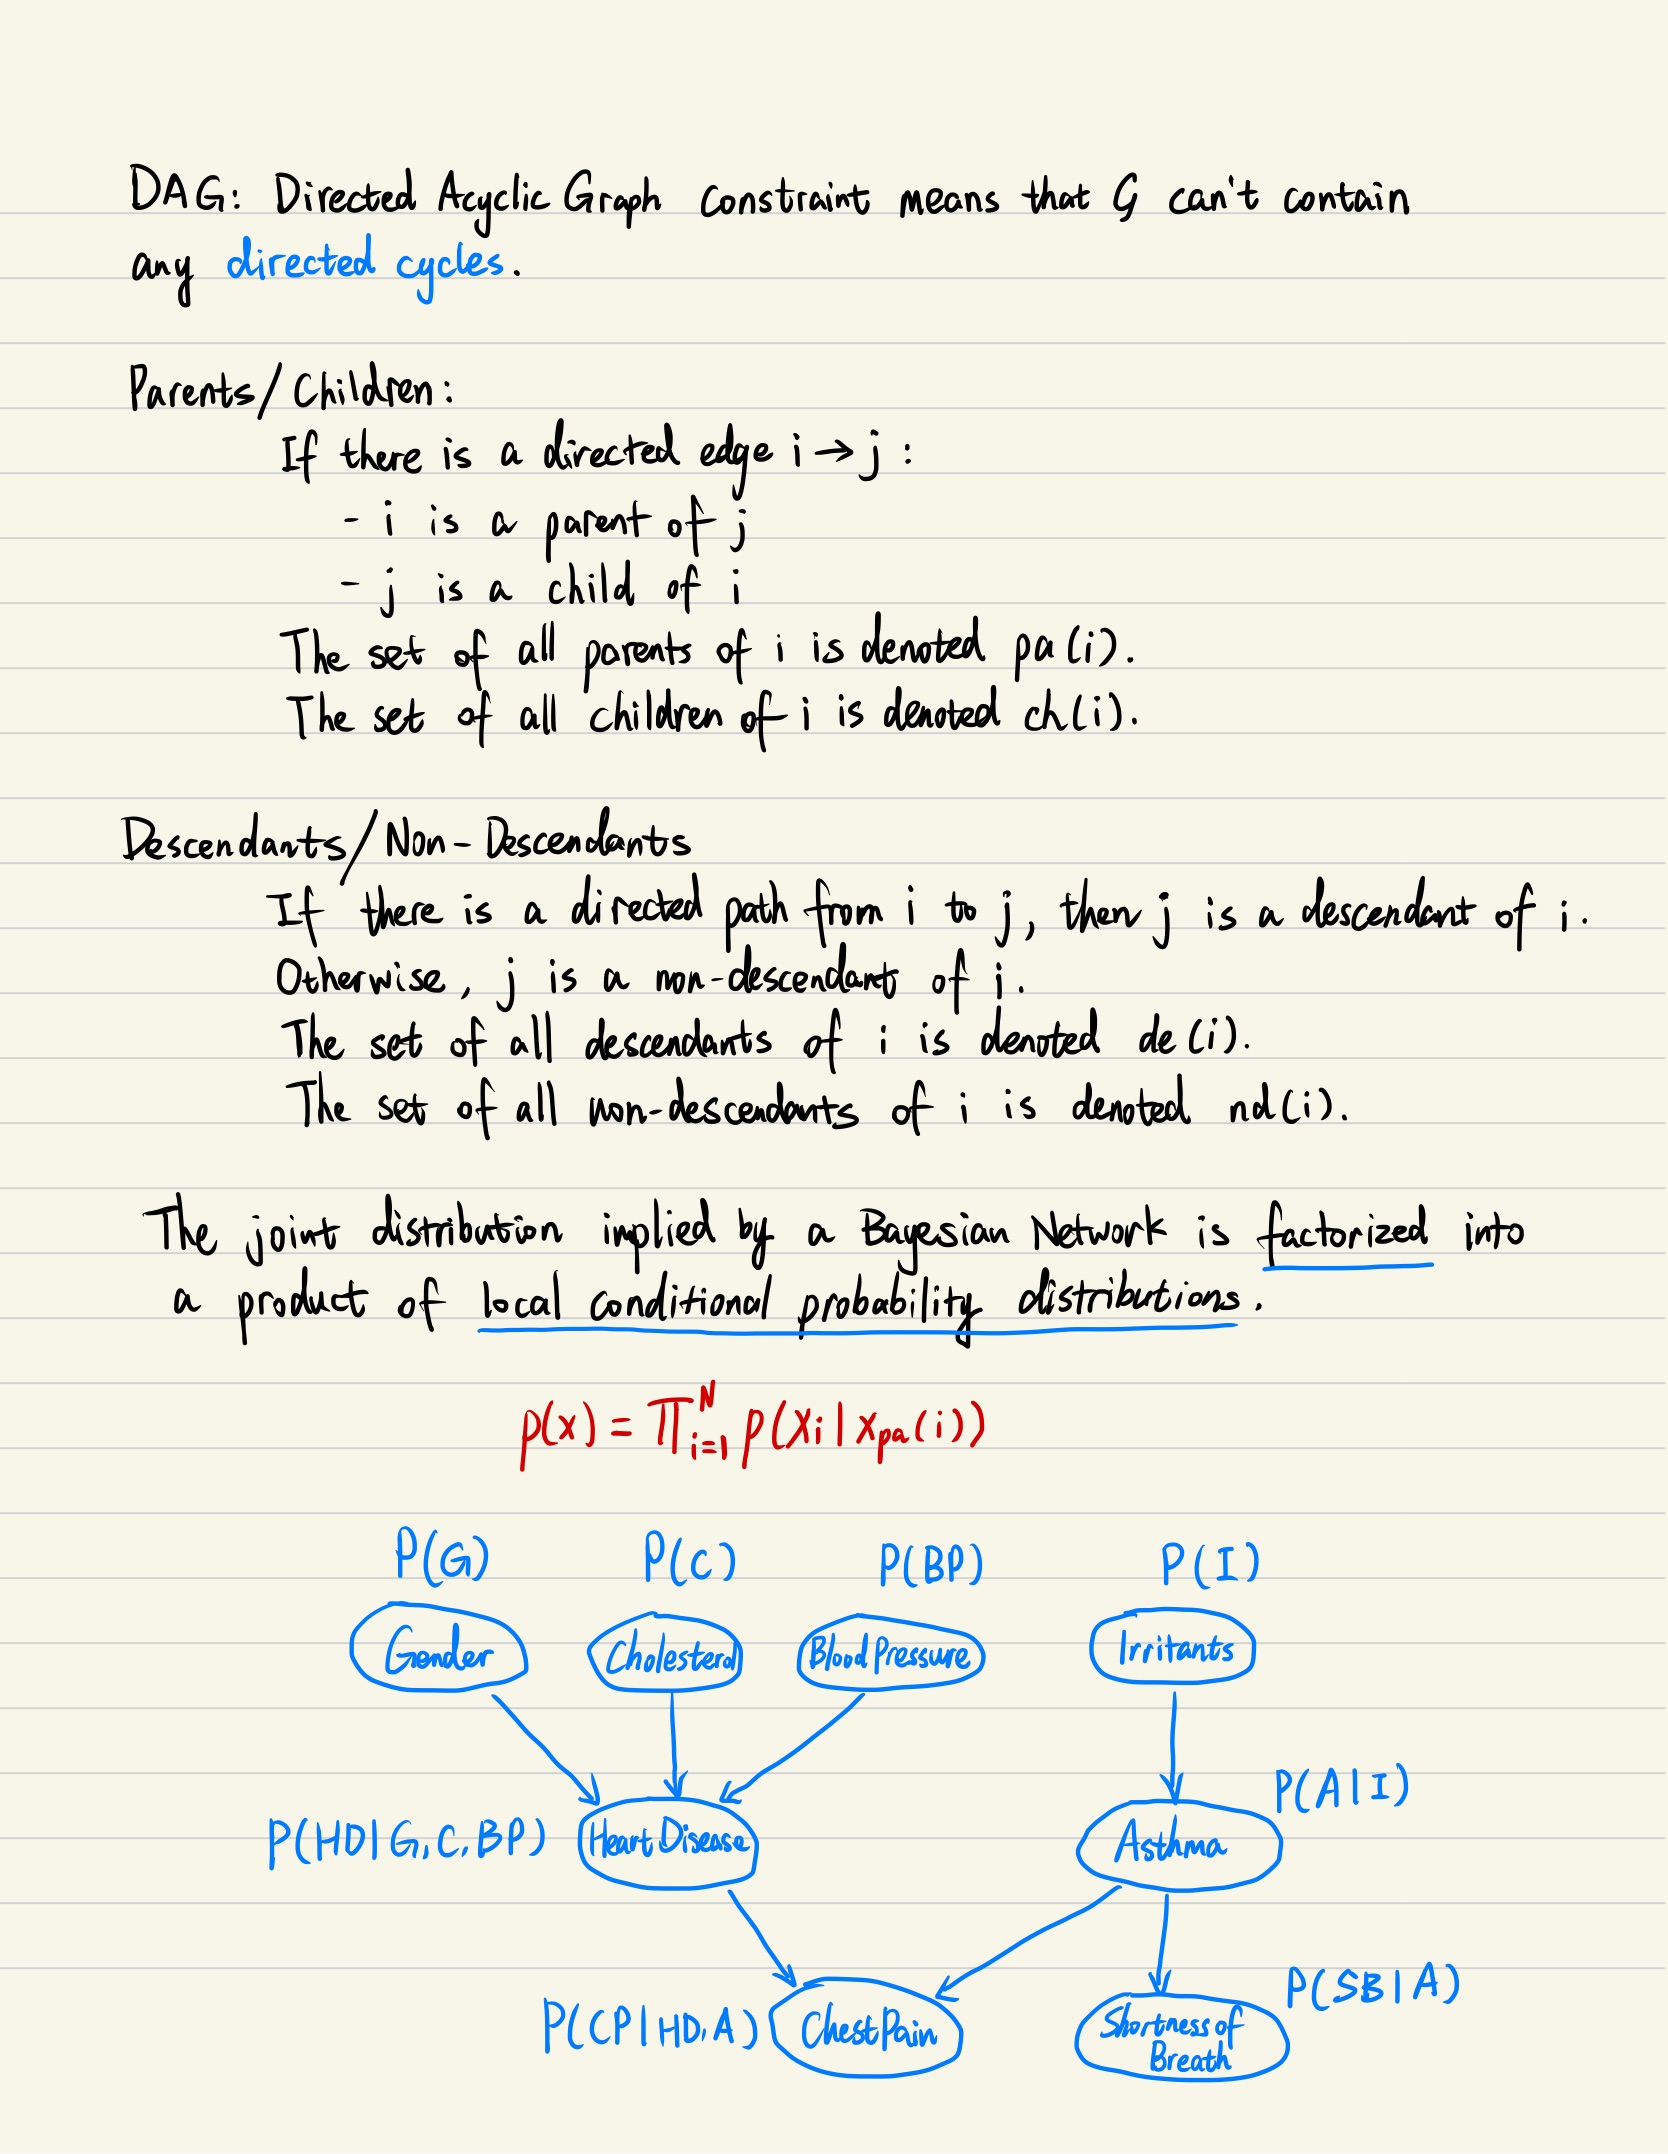 DAG: Directed Acyclic Graph constraint means that G can't contain
any directed cycles.
Parents/Children:
If there is a directed edge i → j :
- i is a parent of j
- j is a child of i
The set of all parents of i is denoted pa(i).
The set of all children of i is denoted ch(i).
Descendants/Non-Descendants
If there is a directed path from i to j, then j is a descendant of i.
Otherwise, j is a non-descendant of i.
The set of all descendants of i is denoted de(i).
The set of all non-descendants of i is denoted nd(i).
The joint distribution implied by a Bayesian Network is factorized into
a product of local conditional probability distributions.
p(x) = ∏_{i=1}^{N} p(x_i | x_{pa(i)})
P(G) P(C) P(BP) P(I)
Gender Cholesterol Blood Pressure Irritants
P(A|I)
P(HD|G,C,BP) Heart Disease Asthma
P(SB|A)
P(CP|HD,A) Chest Pain Shortness of
Breath